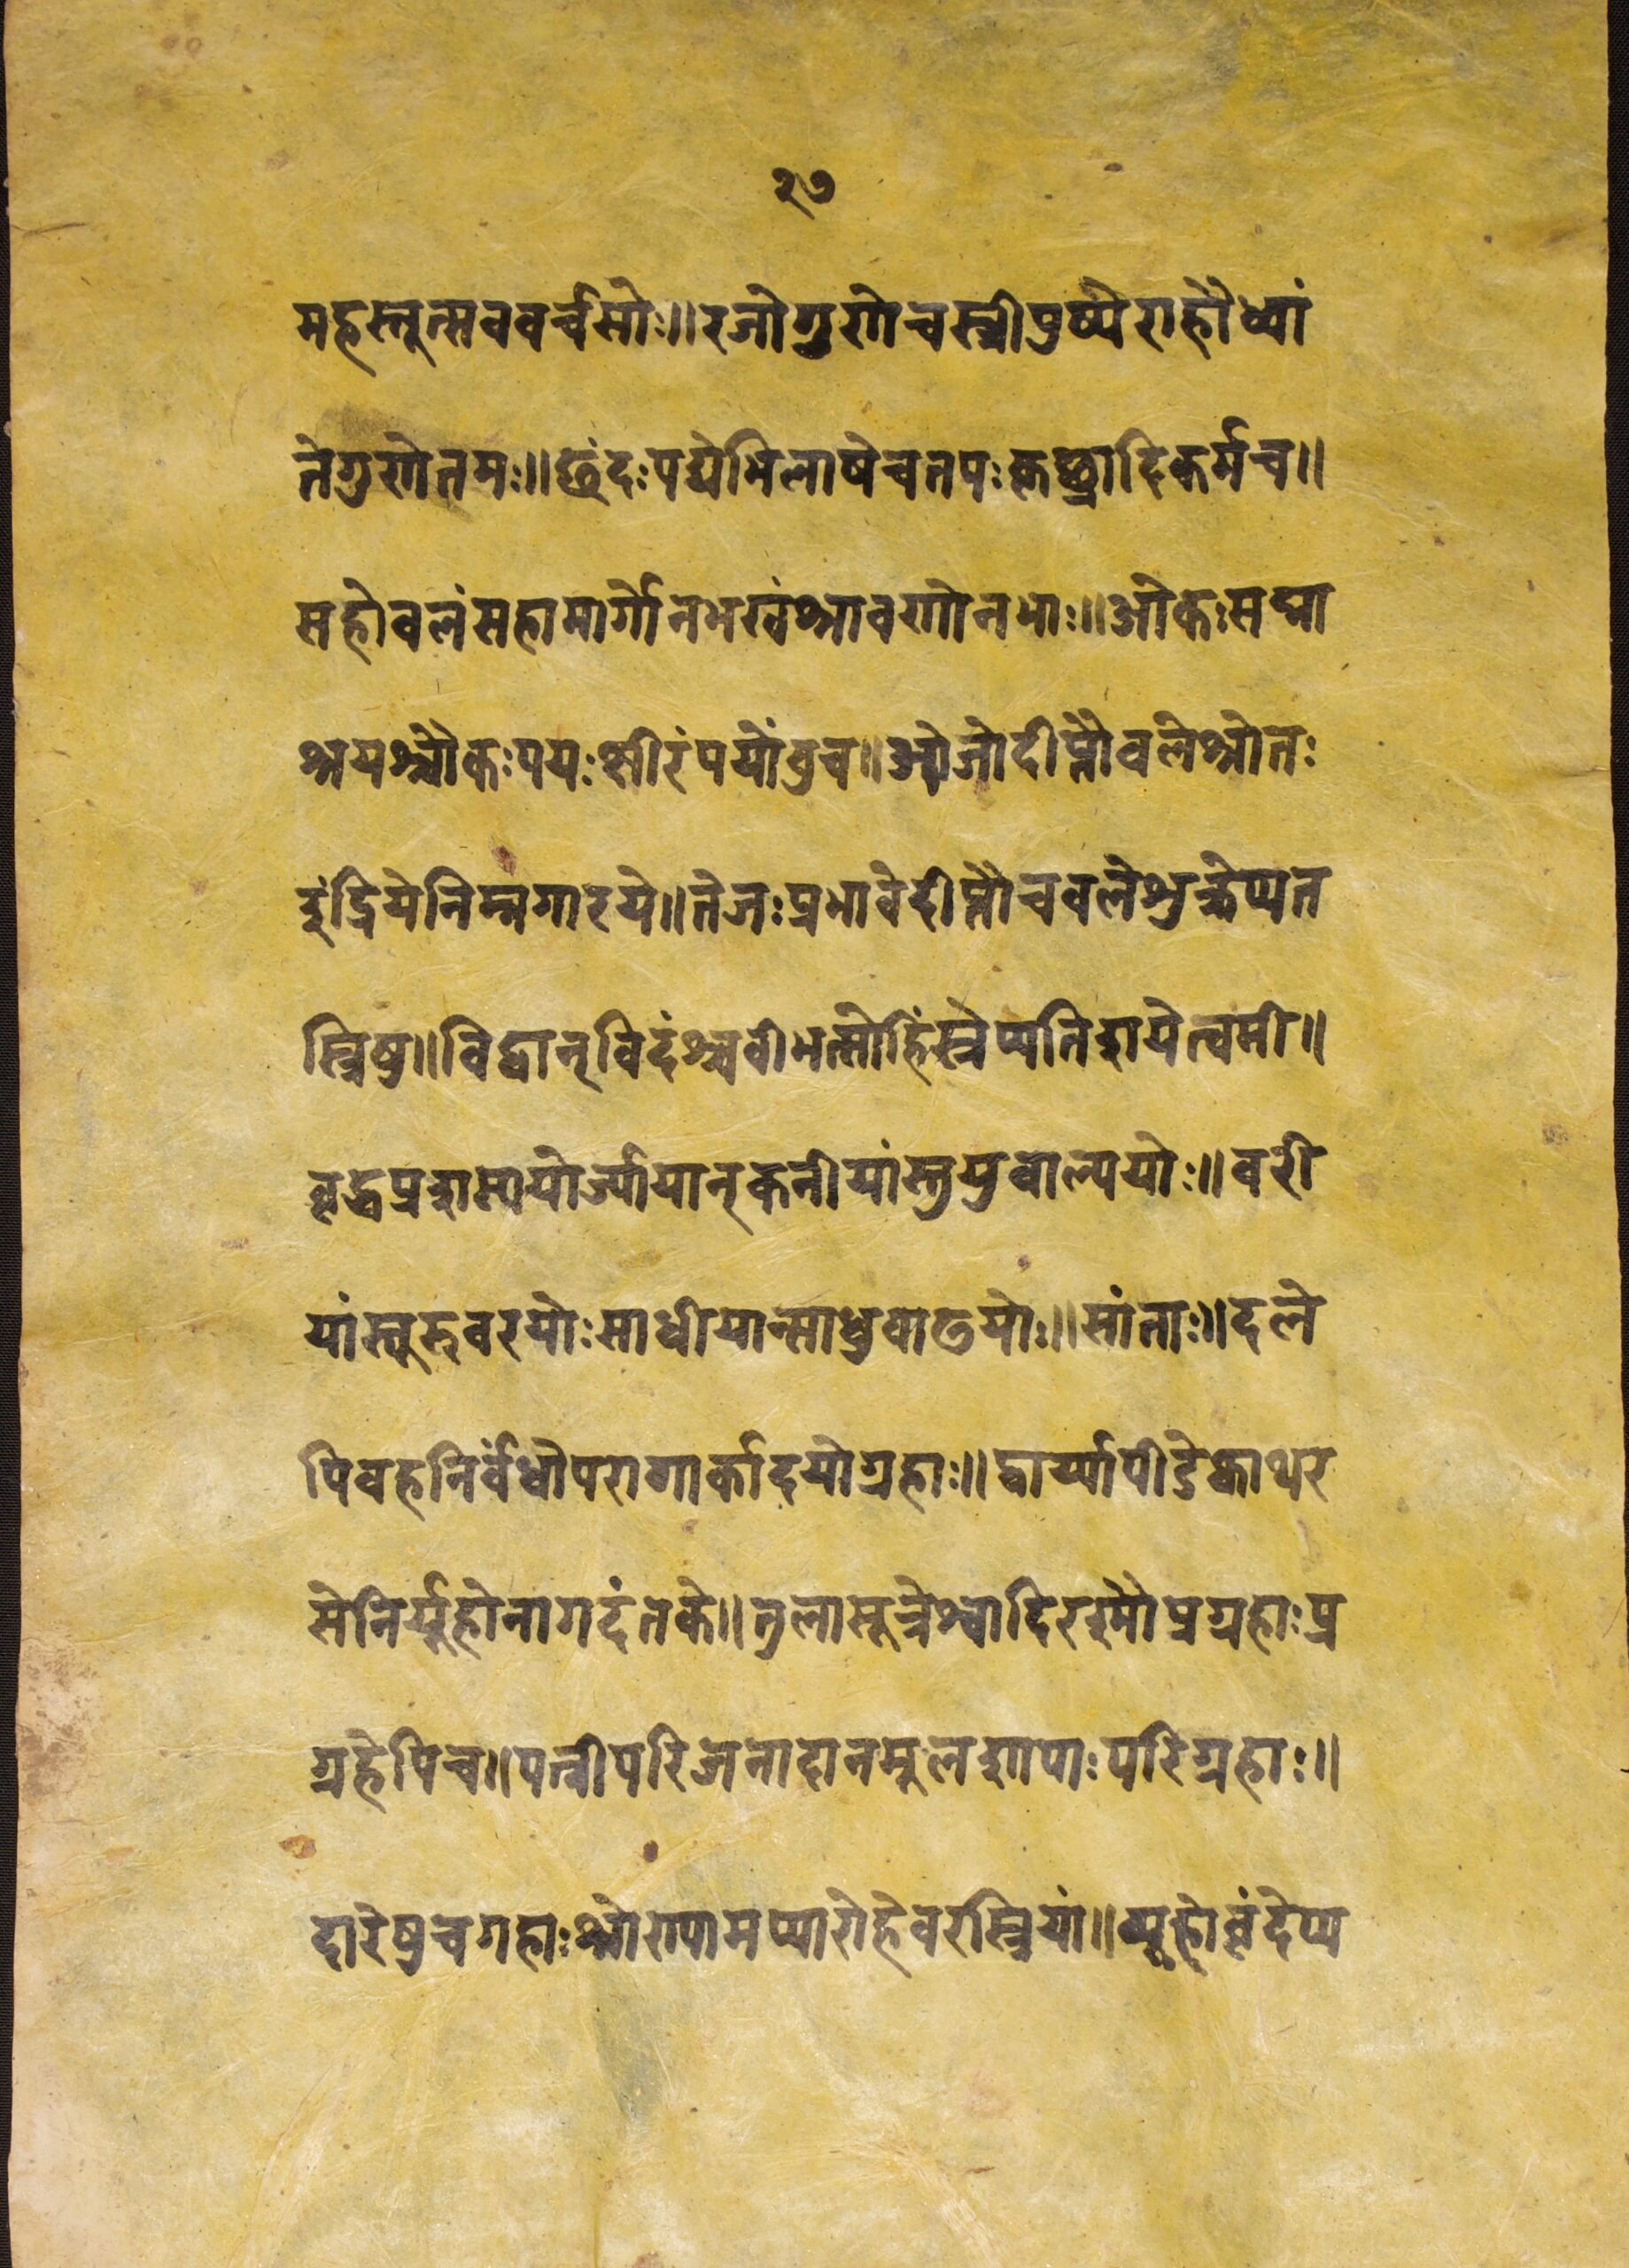 २७
महस्तूत्सववर्चसोः॥रजोगुणेचस्त्रीपुष्पेराहौध्वां
तेगुणेतमः॥छंदःपद्येभिलाषेचतपःकृछ्रादिकर्मच॥
सहोवलंसहामार्गोनभखंश्रावणोनभाः॥ओकःसद्मा
श्रयश्चौकःपयःक्षीरंपयोंवुच॥ओजोदीप्तौवलेश्रोतः
इंद्रियेनिम्नगारये॥तेजःप्रभावेदीप्तौचवलेशुक्रेप्यत
स्त्रिषु॥विद्वान्विदंश्चवीभत्सोहिंस्त्रेप्यतिशयेत्वमी॥
वृद्धप्रशस्ययोर्ज्यायान्कनीयांस्तुयुवाल्पयोः॥वरी
यांस्तूरुवरयोःसाधीयान्साधुवाढयोः॥सांताः॥दले
पिवर्हनिर्वंधोपरागार्कादयोग्रहाः॥द्वार्य्यापीडेक्वाथर
सेनिर्यूहोनागदंतके॥तुलासूत्रेश्वादिरश्मौप्रग्रहाःप्र
ग्रहेपिच॥पत्नीपरिजनादानमूलशापाःपरिग्रहाः॥
दारेषुचगहाःश्रोण्यामप्यारोहेवरस्त्रियां॥व्यूहोवृंदेप्य